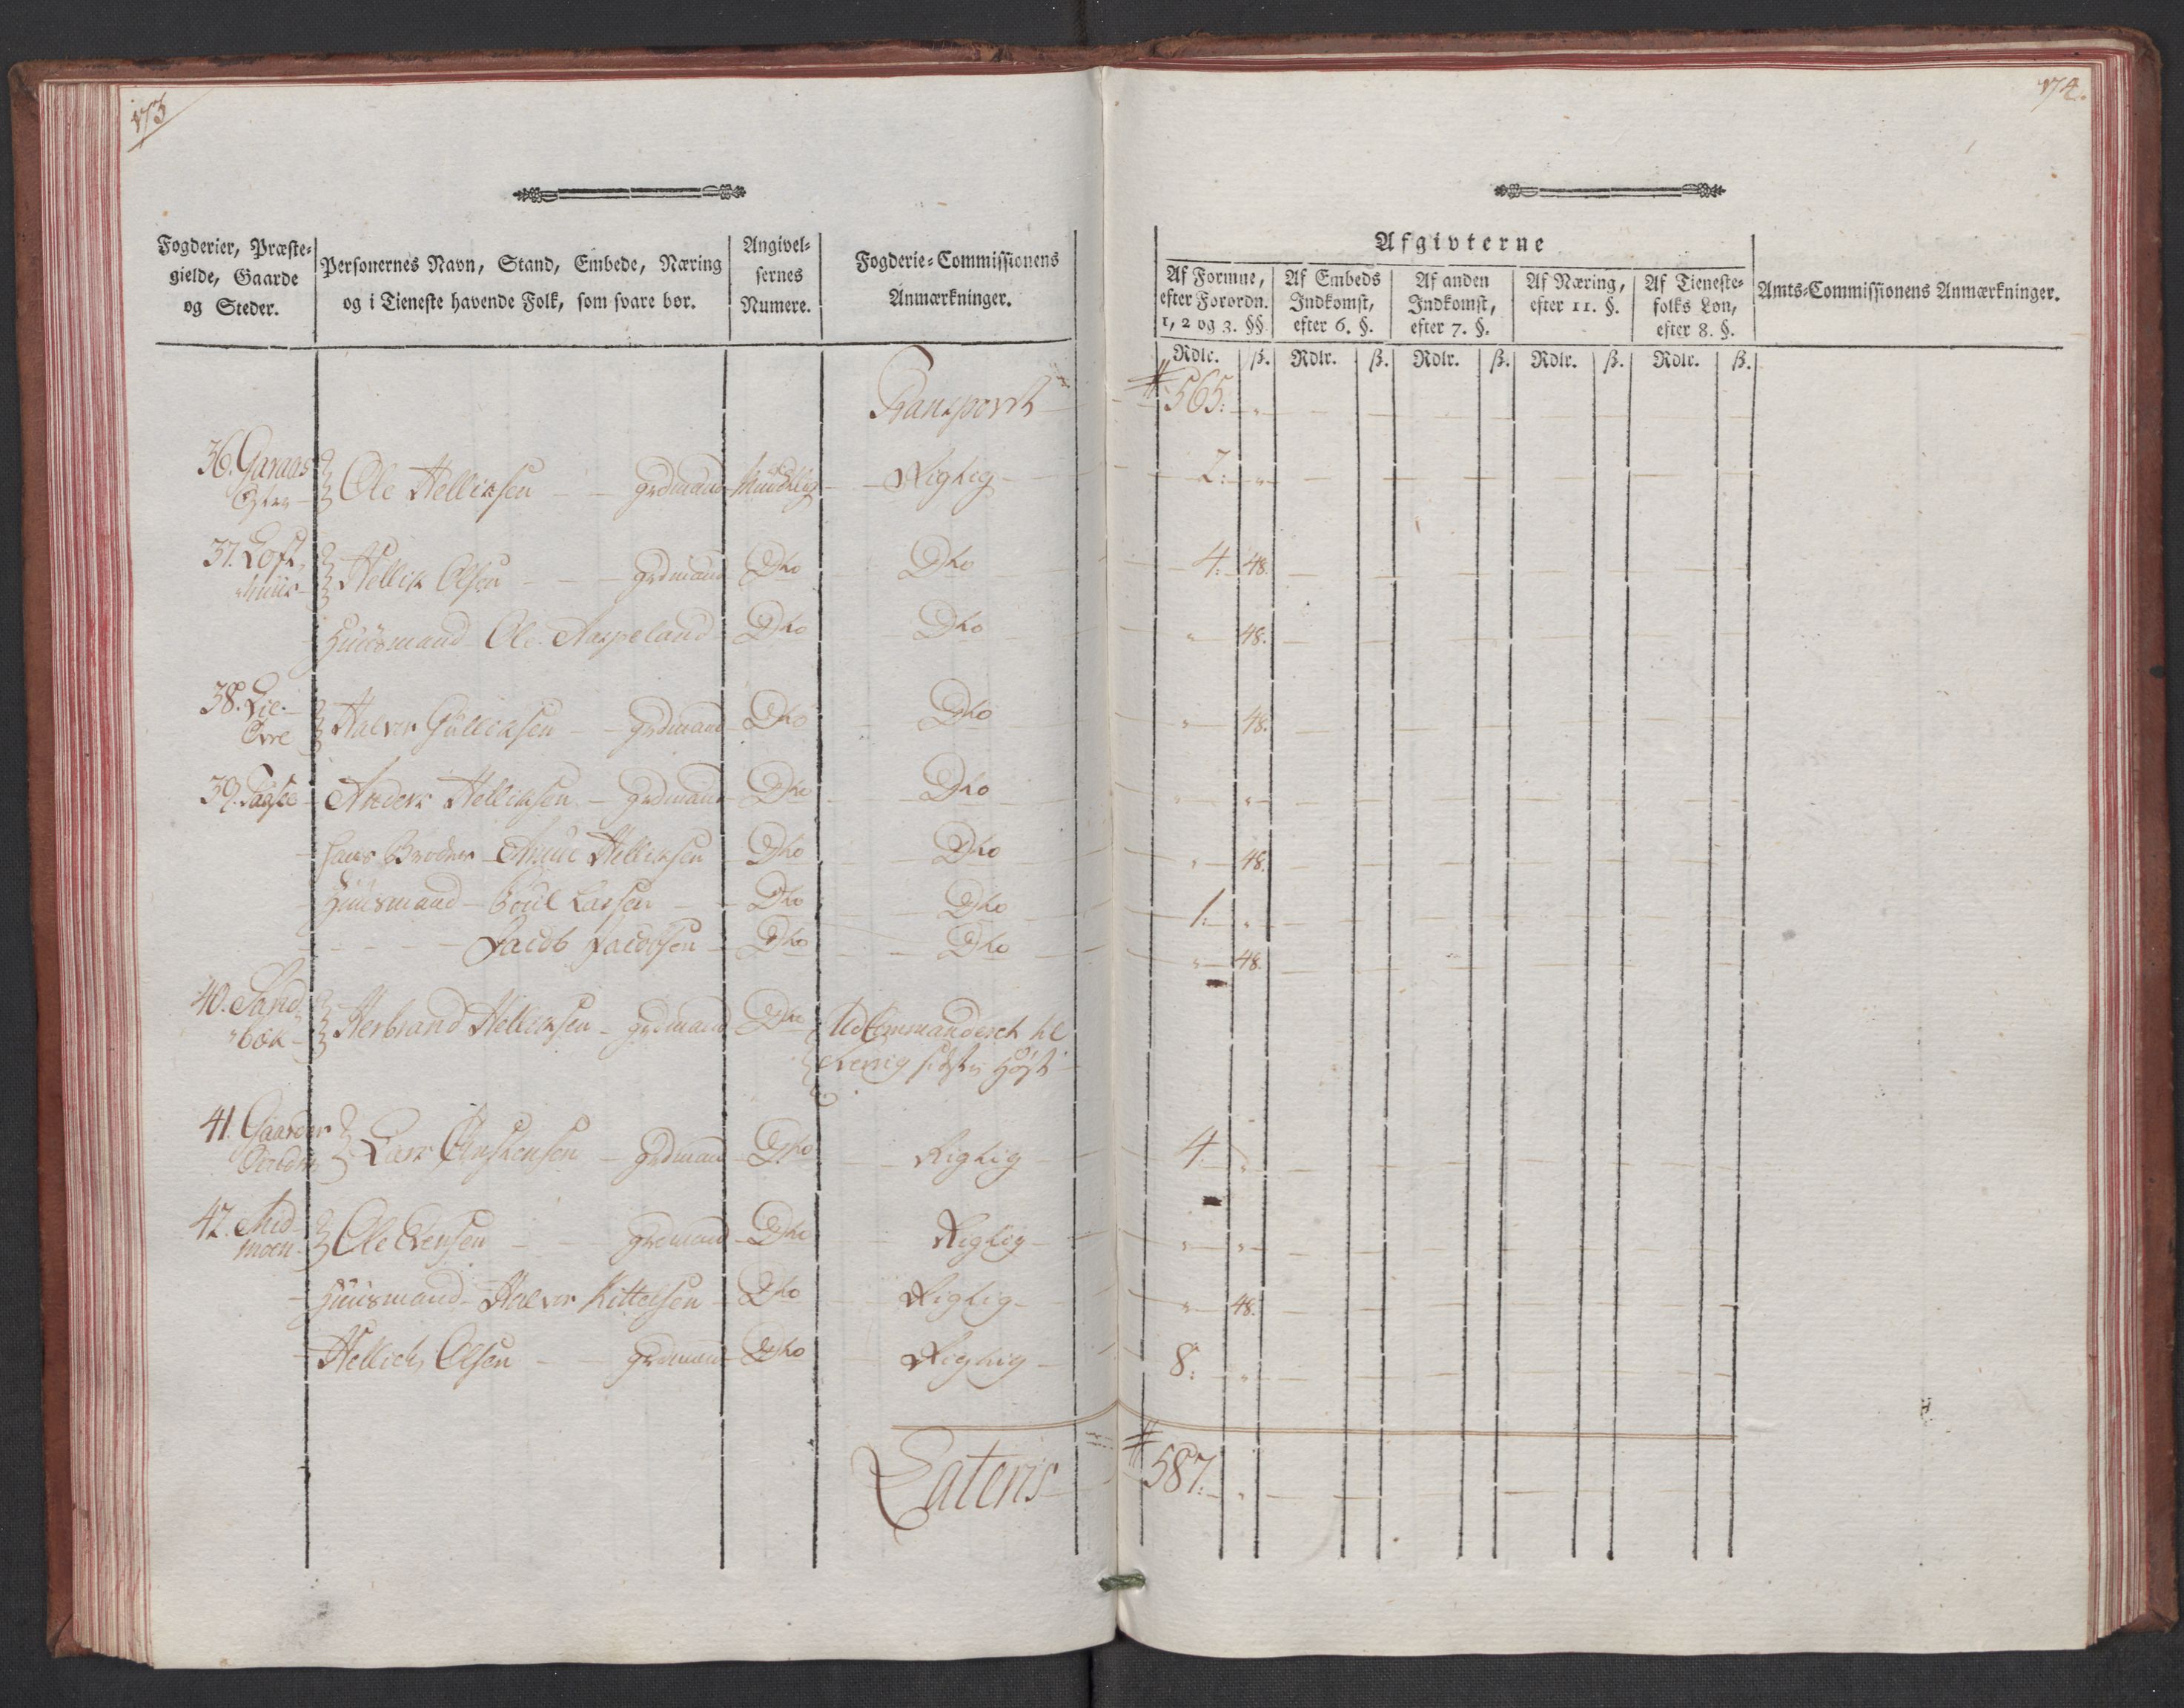 173
174.
Fogderier, Præste-
gielde, Gaarde
og Steder.
Personernes Navn, Stand, Embede, Næring
og i Tieneste havende Folk, som svare bør.
Angivel-
sernes
Numere.
Fogderie-Commissionens
Anmærkninger.
Afgivterne
Af Formue,
efter Forordn.
1, 2 og 3. §§.
Af Embeds
Indkomst,
efter 6. §.
Af anden
Indkomst,
efter 7. §.
Af Næring,
efter 11. §.
Af Tieneste-
folks Løn,
efter 8. §.
Amts-Commissionens Anmærkninger.
Rdlr. ß. Rdlr. ß. Rdlr. ß. Rdlr. ß. Rdlr. ß.
Transport # 565: "
36. Garaas
Ole Helliksen - - grdmand Mundtlig Rigtig 2: "
37. Loft-
huus Hellik Olsen - - grdmand Dto Dto 4: 48.
Huusmand Ole Aaspeland Dto Dto " 48.
38. Lie
Øvre Halvor Gulleksen - grdmand Dto Dto " 48.
39. Anders Helliksen - grdmand Dto Dto " "
hans Broder Helliksen Dto Dto " 48.
Huusmand - Poul Larsen Dto Dto 1: "
Jacob Jacobsen Dto Dto " 48.
40. Sand-
bæk Herbrand Helliksen - grdmand Dto Udcommanderet til
sidste Høst
41. Gaarder
Lars Christensen - grdmand Dto Rigtig 4. "
42. Mid-
moen Ole Evensen - - grdmand Dto Rigtig " "
Huusmand - Halvor Kittelsen Dto Rigtig " 48.
Hellich Olsen - - grdmand Dto Rigtig 8: "
Lateris # 587: "